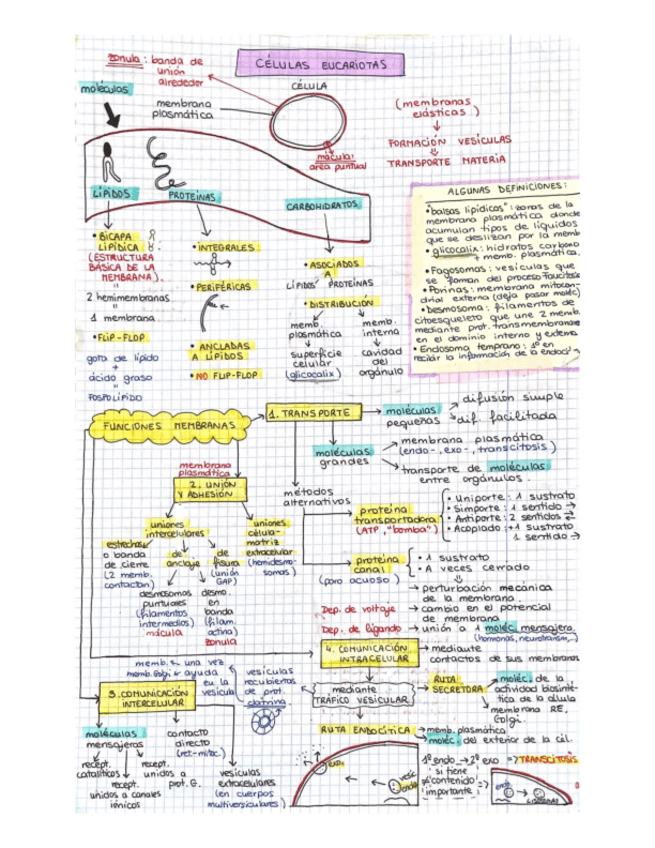 CÉLULAS EUCARIOTAS
zonula: banda de
unión
alrededor
moléculas
membrana
plasmática
CÉLULA
mácula:
área puntual
(membranas
elásticas)
FORMACIÓN VESÍCULAS
TRANSPORTE MATERIA
LÍPIDOS
PROTEÍNAS
CARBOHIDRATOS
• BICAPA
LIPÍDICA
(ESTRUCTURA
BÁSICA DE LA
MEMBRANA).
2 hemimembranas
1 membrana
• FLIP-FLOP
gota de lípido
+
ácido graso
FOSFOLÍPIDO
• INTEGRALES
• PERIFÉRICAS
• ANCLADAS
A LÍPIDOS
• NO FLIP-FLOP
• ASOCIADOS
A
LÍPIDOS/ PROTEÍNAS
• DISTRIBUCIÓN
memb.
plasmática
superficie
celular
(glicocalix)
memb.
interna
cavidad
del
orgánulo
ALGUNAS DEFINICIONES:
• "balsas lipídicas": zonas de la
membrana plasmática donde
acumulan tipos de líquidos
que se deslizan por la memb
• glicocalix: hidratos carbono
+ memb. plasmática.
• Fagosomas: vesículas que
se forman del proceso
• Porinas: membrana mitocon-
drial externa (deja pasar moléc)
• Desmosoma: filamentos de
citoesqueleto que une 2 memb.
mediante prot. transmembranas
en el dominio interno y externo
• Endosoma temprano: 1º en
recibir la información de la endoci
FUNCIONES MEMBRANAS
1. TRANSPORTE
moléculas
pequeñas
difusión simple
dif. facilitada
moléculas
grandes
membrana plasmática
(endo-, exo-, transcitosis)
transporte de moléculas
entre orgánulos.
métodos
alternativos
proteína
transportadora
(ATP, "bomba")
• Uniporte: 1 sustrato
• Simporte: 1 sentido →
• Antiporte: 2 sentidos ⇄
• Acoplado: +1 sustrato
1 sentido →
proteína
canal
(poro acuoso)
• 1 sustrato
• A veces cerrado
→ perturbación mecánica
de la membrana.
Dep. de voltaje → cambio en el potencial
de membrana
Dep. de ligando → unión a 1 moléc. mensajera
(hormonas, neurotransm,...)
membrana
plasmática
2. UNIÓN
Y ADHESIÓN
uniones
intercelulares
estrechas
o banda
de cierre
(2 memb.
contactan)
de
anclaje
de
fisura
(unión
GAP)
desmosomas
puntuales
(filamentos
intermedios)
mácula
desmo.
en
banda
(filam.
actina)
zonula
uniones
célula-
matriz
extracelular
(hemidesmo-
somas)
4. COMUNICACIÓN
INTRACELULAR
→ mediante
contactos de sus membranas
mediante
TRÁFICO VESICULAR
RUTA
SECRETORA:
moléc. de la
actividad biosinté-
tica de la célula
membrana RE,
Golgi.
RUTA ENDOCÍTICA
→ memb. plasmática
moléc. del exterior de la cél.
memb. ← una vez
memb. Golgi ← ayuda
en la
vesícula
vesículas
recubiertas
de prot.
clatrina.
3. COMUNICACIÓN
INTERCELULAR
moléculas
mensajeras
recept.
catalíticos
recept.
unidos a canales
iónicos
recept.
unidos a
prot. G.
contacto
directo
vesículas
extracelulares
(en cuerpos
multivesiculares)
exo
vesíc
endo
1º endo → 2º exo ⇒ TRANSCITOSIS
si tiene
contenido
importante
endo